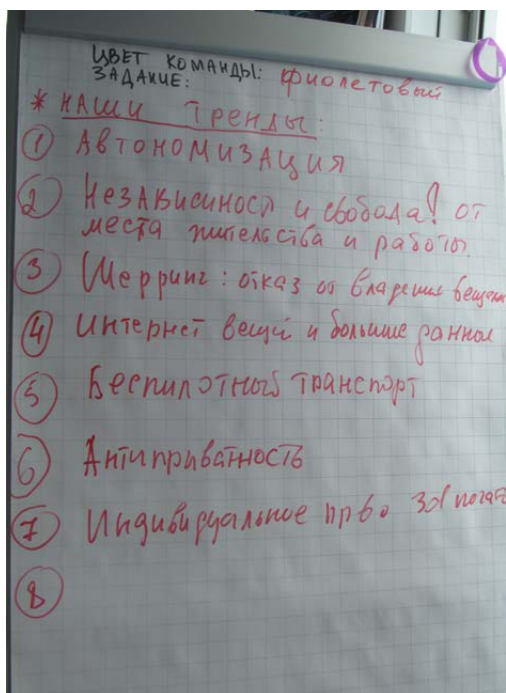 ЦВЕТ КОМАНДЫ: фиолетовый
ЗАДАНИЕ:
* НАШИ ТРЕНДЫ:
① АВТОНОМИЗАЦИЯ
② Независимост и свобода! от
места жительства и работы.
③ Шерринг: отказ от владения вещами
④ Интернет вещей и большие данные
⑤ Беспилотный транспорт
⑥ Антиприватность
⑦ Индивидуальное пр-во 3d
⑧